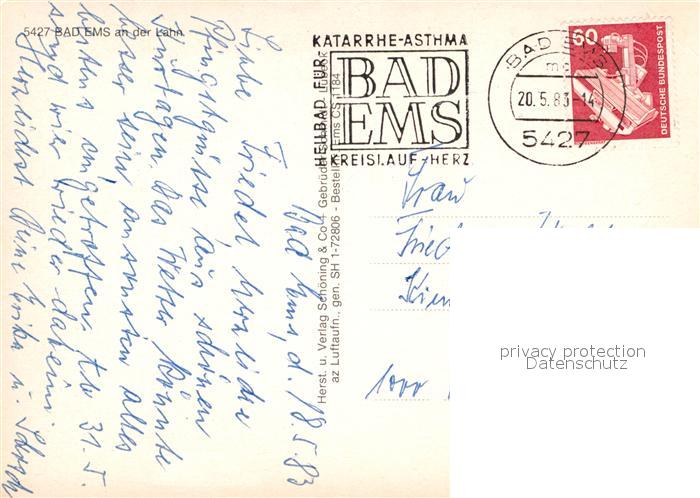 5427 BAD EMS an der Lahn
KATARRHE-ASTHMA
HEILBAD FÜR
BAD
EMS
KREISLAUF-HERZ
BAD EMS
mc
20.5.83-14
5427
60
DEUTSCHE BUNDESPOST
Herst. u. Verlag Schöning & Co + Gebrüder
az Luftaufn., gen. SH 1-72806 - Bestell
Ems CS 1184
Bad Ems, d. 18.5.83
Liebe Friedel herzliche
Pfingstgrüße aus schönen
Kurtagen. Das Wetter könnte
besser sein ansonsten alles
bestens angetroffen. Ab 31.5.
sind wir wieder daheim.
Herzlichst Deine Erika u.
Frau
1000
privacy protection
Datenschutz